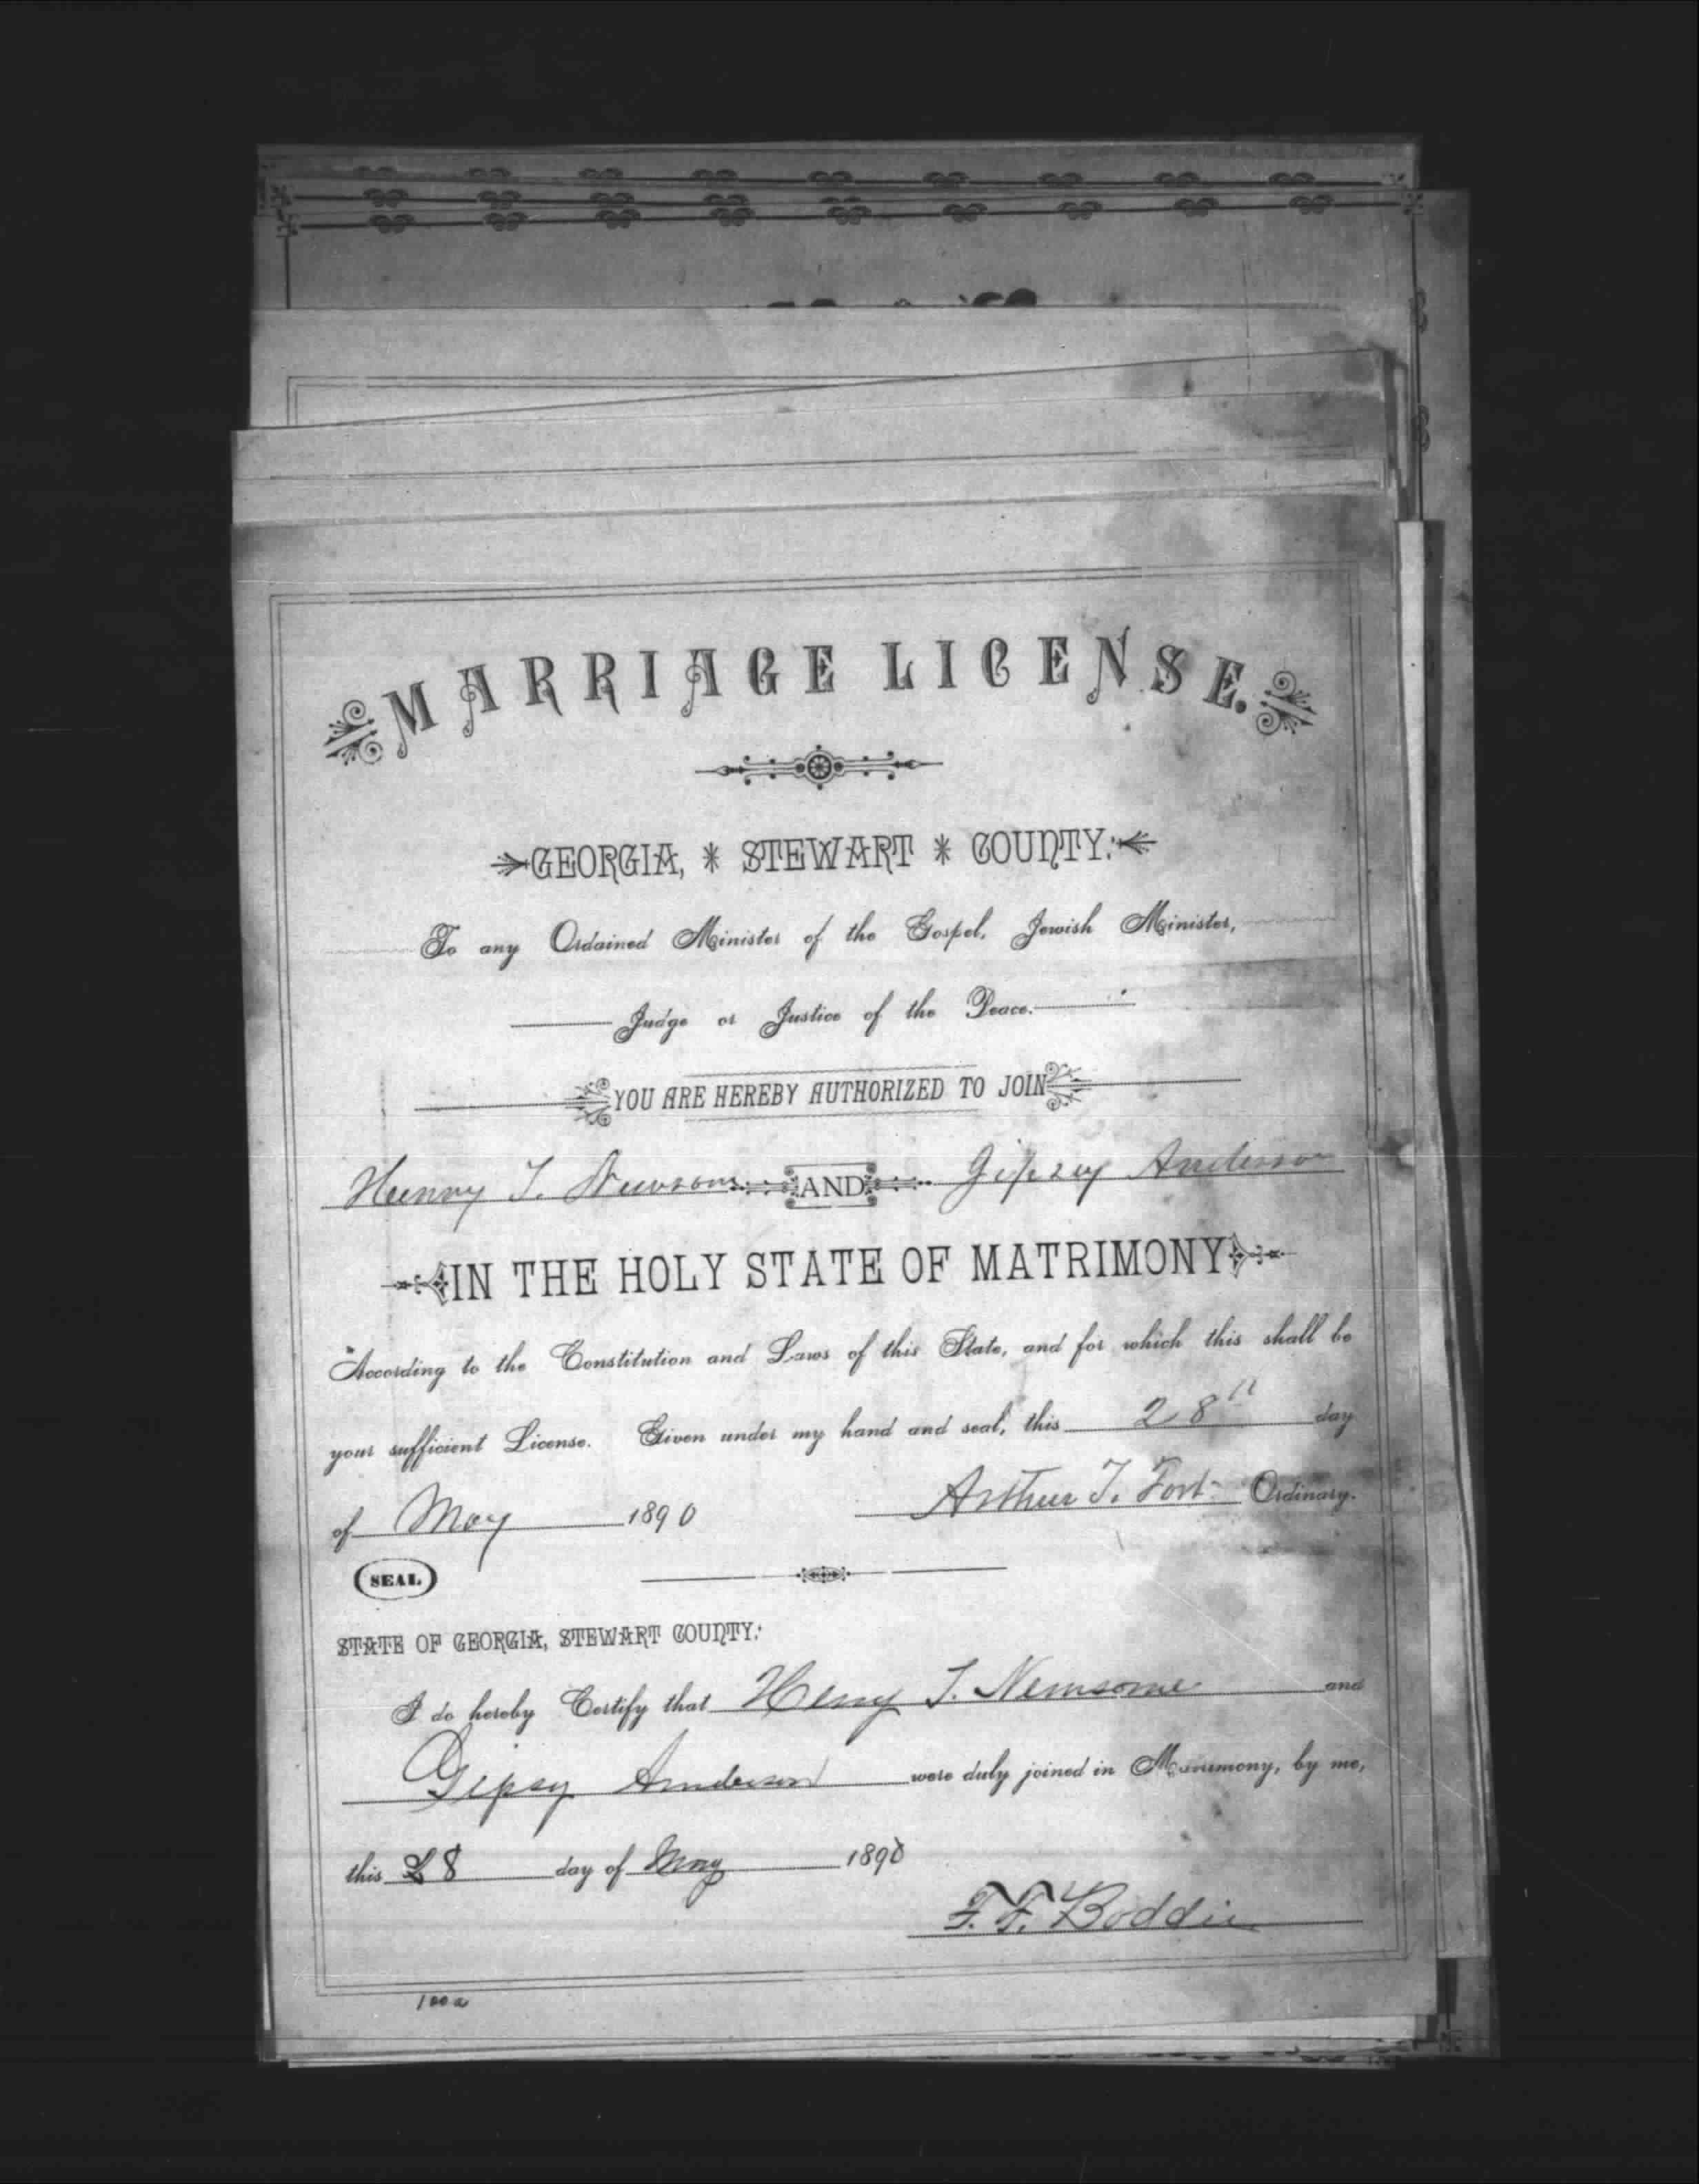 MARRIAGE LICENSE.
GEORGIA, * STEWART * COUNTY:
To any Ordained Minister of the Gospel, Jewish Minister,
Judge or Justice of the Peace.
YOU ARE HEREBY AUTHORIZED TO JOIN
Henry T. Newsom AND Gipsey Anderson
IN THE HOLY STATE OF MATRIMONY
According to the Constitution and Laws of this State, and for which this shall be
your sufficient License. Given under my hand and seal, this 28th day
of May 1890 Arthur T. Fort Ordinary.
SEAL
STATE OF GEORGIA, STEWART COUNTY:
I do hereby Certify that Henry T. Newsome and
Gipsy Anderson were duly joined in Matrimony, by me,
this 28 day of May 1890
F. F. Boddie